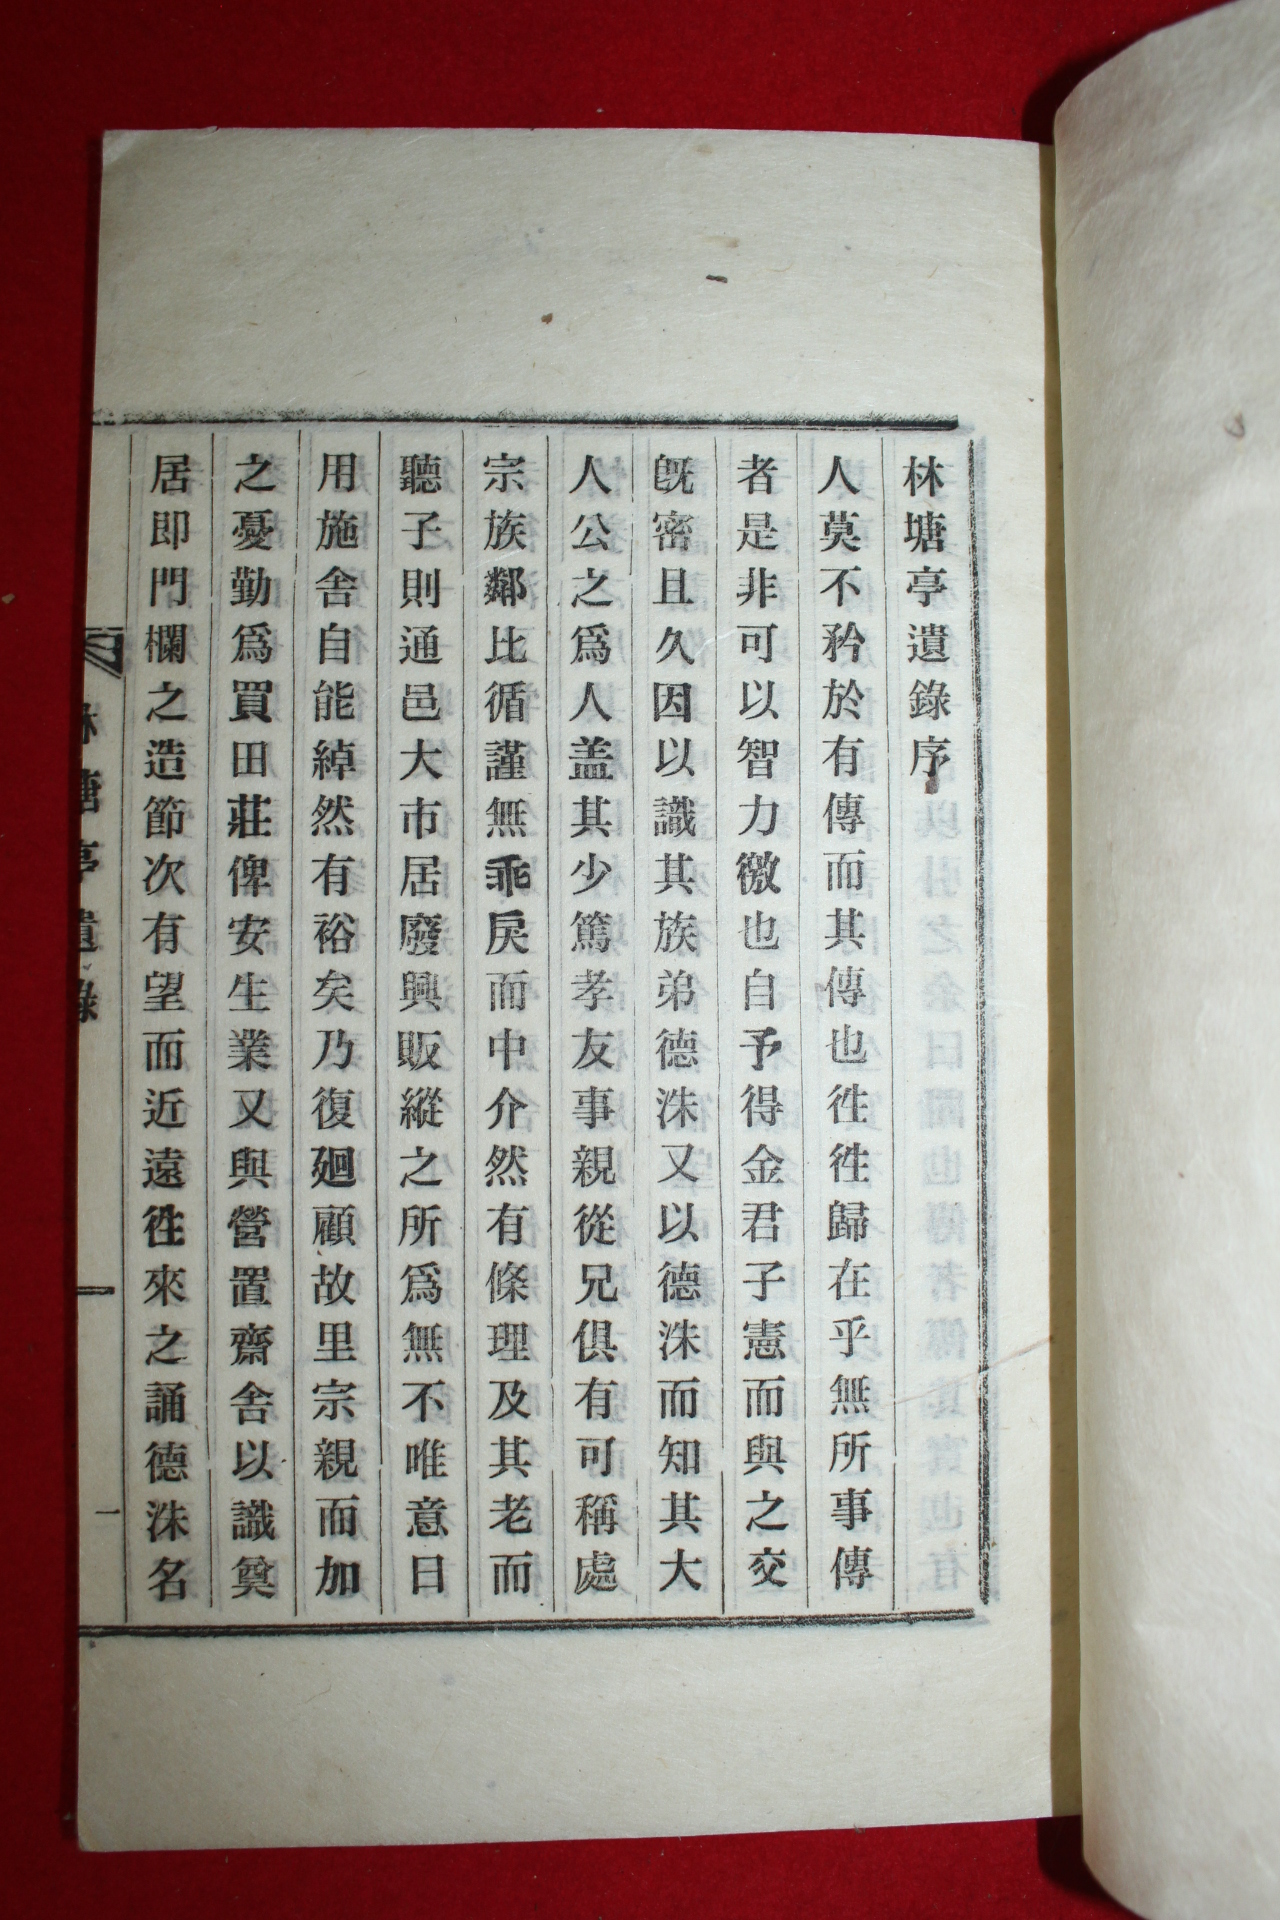 林塘亭遺錄序
人莫不矜於有傳而其傳也徃徃歸在乎無所事傳
者是非可以智力徼也自予得金君子憲而與之交
旣密且久因以識其族弟德洙又以德洙而知其大
人公之爲人盖其少篤孝友事親從兄俱有可稱處
宗族鄰比循謹無乖戾而中介然有條理及其老而
聽子則通邑大市居廢興販縱之所爲無不唯意日
用施舍自能綽然有裕矣乃復廻顧故里宗親而加
之憂勤爲買田莊俾安生業又與營置齋舍以識奠
居即門欄之造節次有望而近遠徃來之誦德洙名
林塘亭遺錄
一